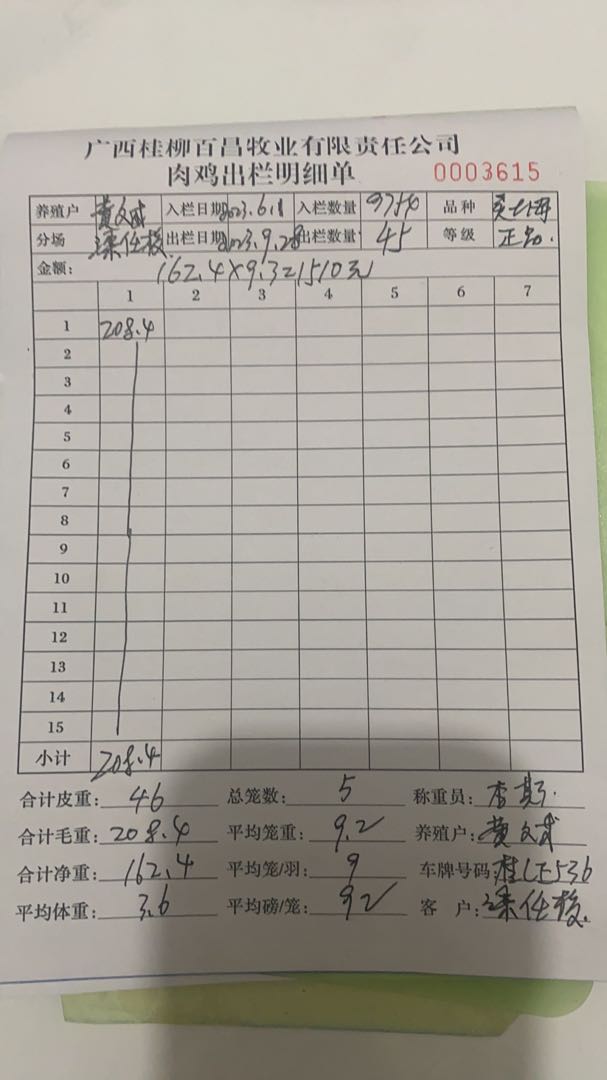 广西桂柳百昌牧业有限责任公司
肉鸡出栏明细单 0003615
养殖户 黄文斌 入栏日期 2023.6.1 入栏数量 9754 品种
分场 出栏日期 2023.9.28 出栏数量 45 等级 正品.
金额: 162.4×9.3=1510元
1 2 3 4 5 6 7
1 208.4
2
3
4
5
6
7
8
9
10
11
12
13
14
15
小计 208.4
合计皮重: 46 总笼数: 5 称重员: 李
合计毛重: 208.4 平均笼重: 9.2 养殖户: 黄文斌
合计净重: 162.4 平均笼/羽: 9 车牌号码: 桂LE536
平均体重: 3.6 平均磅/笼: 92 客 户: